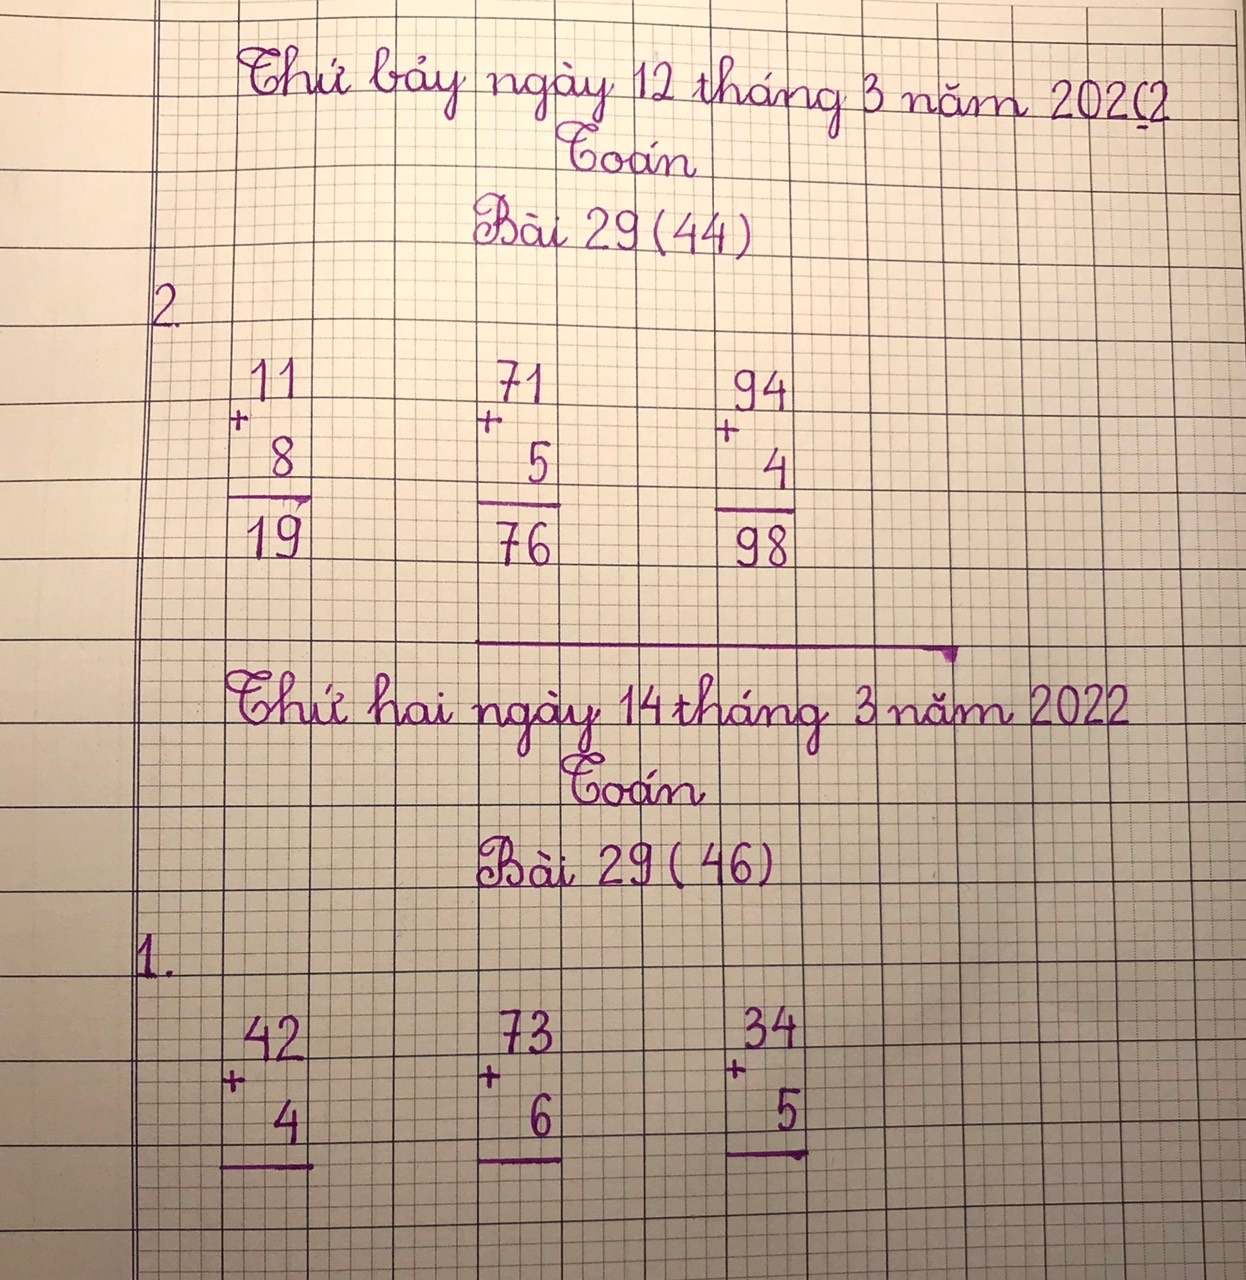 Thứ bảy ngày 12 tháng 3 năm 2022
Toán
Bài 29 (44)
2.
11 71 94
+ + +
8 5 4
19 76 98
Thứ hai ngày 14 tháng 3 năm 2022
Toán
Bài 29 (46)
1.
42 73 34
+ + +
4 6 5